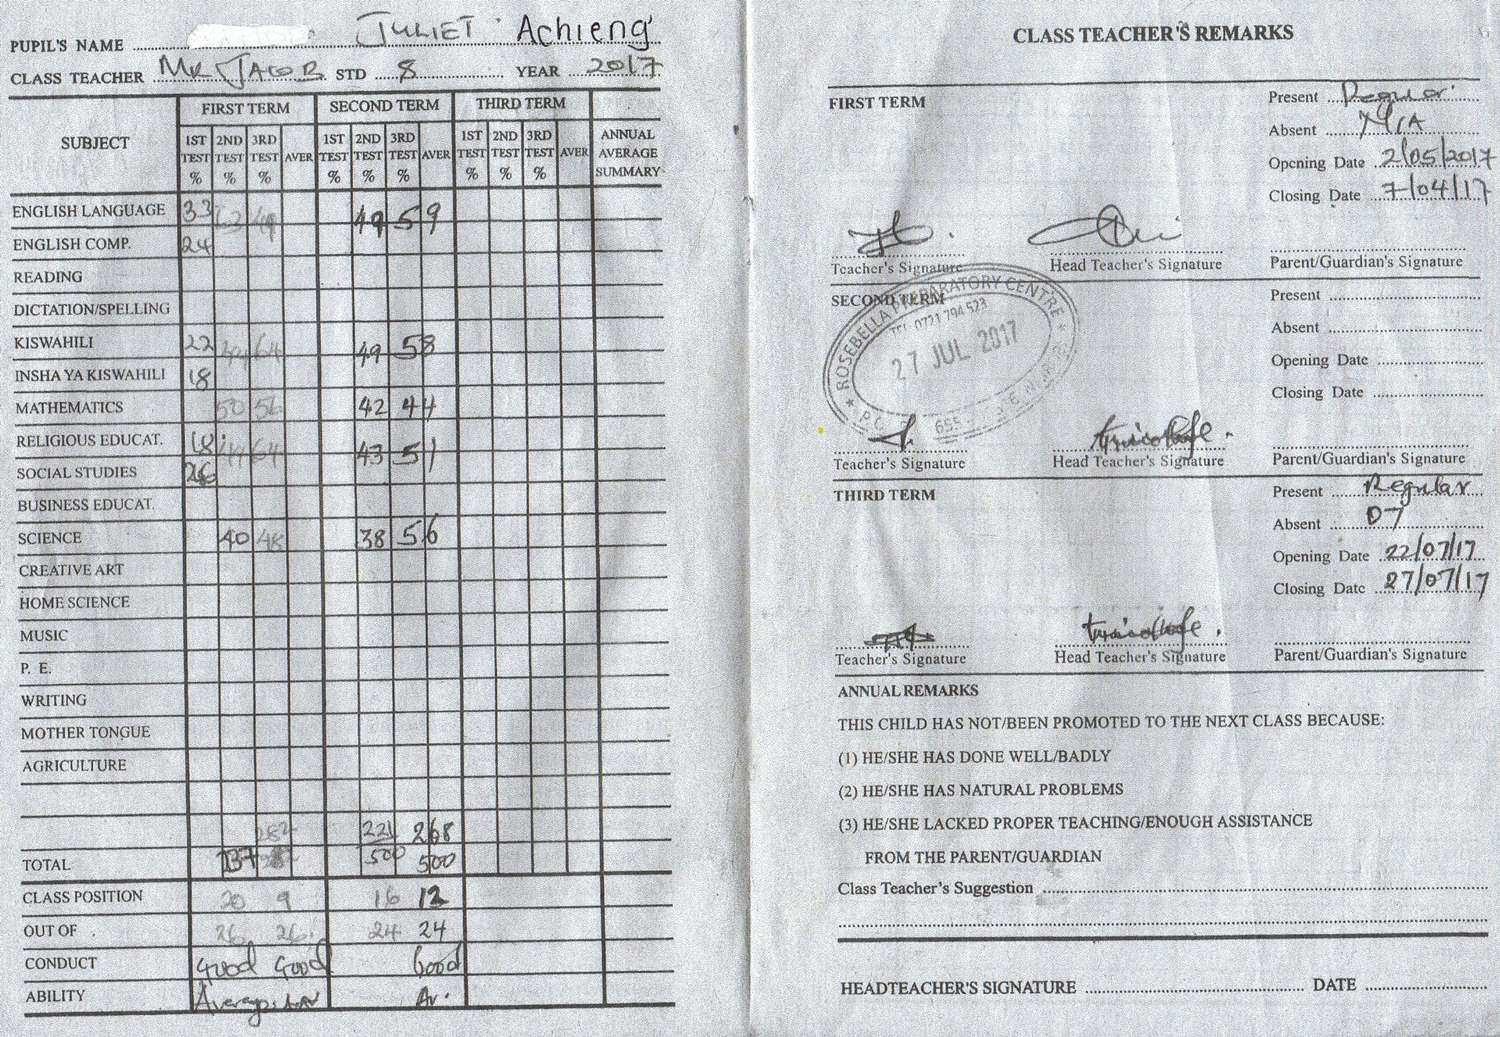 PUPIL'S NAME JULIET Achieng'
CLASS TEACHER MR JACOB STD 8 YEAR 2017
SUBJECT FIRST TERM SECOND TERM THIRD TERM ANNUAL AVERAGE SUMMARY
1ST TEST % 2ND TEST % 3RD TEST % AVER 1ST TEST % 2ND TEST % 3RD TEST % AVER 1ST TEST % 2ND TEST % 3RD TEST % AVER
ENGLISH LANGUAGE 33 49 59
ENGLISH COMP. 24
READING
DICTATION/SPELLING
KISWAHILI 22 44 64 49 58
INSHA YA KISWAHILI 18
MATHEMATICS 50 56 42 44
RELIGIOUS EDUCAT. 18 44 64 43 51
SOCIAL STUDIES 26
BUSINESS EDUCAT.
SCIENCE 40 48 38 56
CREATIVE ART
HOME SCIENCE
MUSIC
P. E.
WRITING
MOTHER TONGUE
AGRICULTURE
221 268
TOTAL 500 500
CLASS POSITION 20 9 16 12
OUT OF 26 26 24 24
CONDUCT Good Good Good
ABILITY Average Av.
CLASS TEACHER'S REMARKS
FIRST TERM
Present Regular
Absent
Opening Date 2/05/2017
Closing Date 7/04/17
Teacher's Signature Head Teacher's Signature Parent/Guardian's Signature
SECOND TERM
Present
Absent
Opening Date
Closing Date
ROSEBELLA PREPARATORY CENTRE
TEL 0721 794 523
27 JUL 2017
Teacher's Signature Head Teacher's Signature Parent/Guardian's Signature
THIRD TERM
Present Regular
Absent 07
Opening Date 22/07/17
Closing Date 27/07/17
Teacher's Signature Head Teacher's Signature Parent/Guardian's Signature
ANNUAL REMARKS
THIS CHILD HAS NOT/BEEN PROMOTED TO THE NEXT CLASS BECAUSE:
(1) HE/SHE HAS DONE WELL/BADLY
(2) HE/SHE HAS NATURAL PROBLEMS
(3) HE/SHE LACKED PROPER TEACHING/ENOUGH ASSISTANCE
FROM THE PARENT/GUARDIAN
Class Teacher's Suggestion
HEADTEACHER'S SIGNATURE DATE